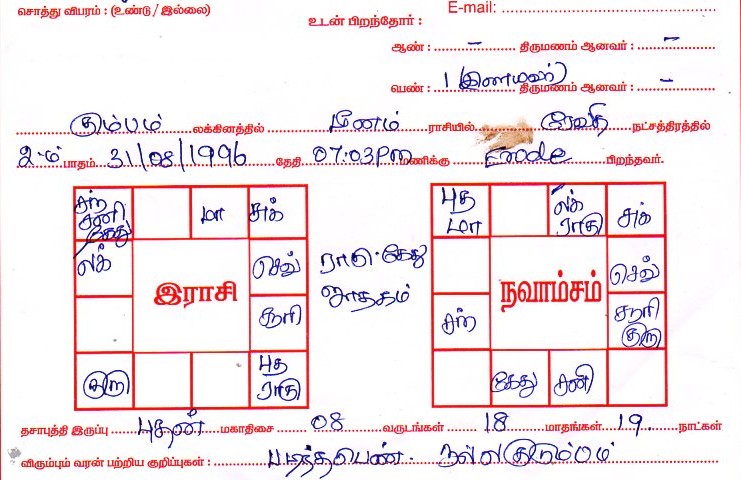 சொத்து விபரம் : (உண்டு / இல்லை) E-mail:
உடன் பிறந்தோர் :
ஆண் : – திருமணம் ஆனவர் : –
பெண் : 1 திருமணம் ஆனவர் : –
கும்பம் லக்கினத்தில் மீனம் ராசியில் ரேவதி நட்சத்திரத்தில்
2-ம் பாதம் 31/08/1996 தேதி 07:03Pm மணிக்கு Erode பிறந்தவர்.
சந் சனி கேது மா சுக்
லக் செவ்
இராசி
சூரி
குரு புத ராகு
ராகு-கேது
ஜாதகம்
புத மா லக் ராகு சுக்
செவ்
நவாம்சம்
சந் சூரி குரு
கேது சனி
தசாபுத்தி இருப்பு புதன் மகாதிசை 08 வருடங்கள் 18 மாதங்கள் 19 நாட்கள்
விரும்பும் வரன் பற்றிய குறிப்புகள் : படித்தபெண். நல்லகுடும்பம்